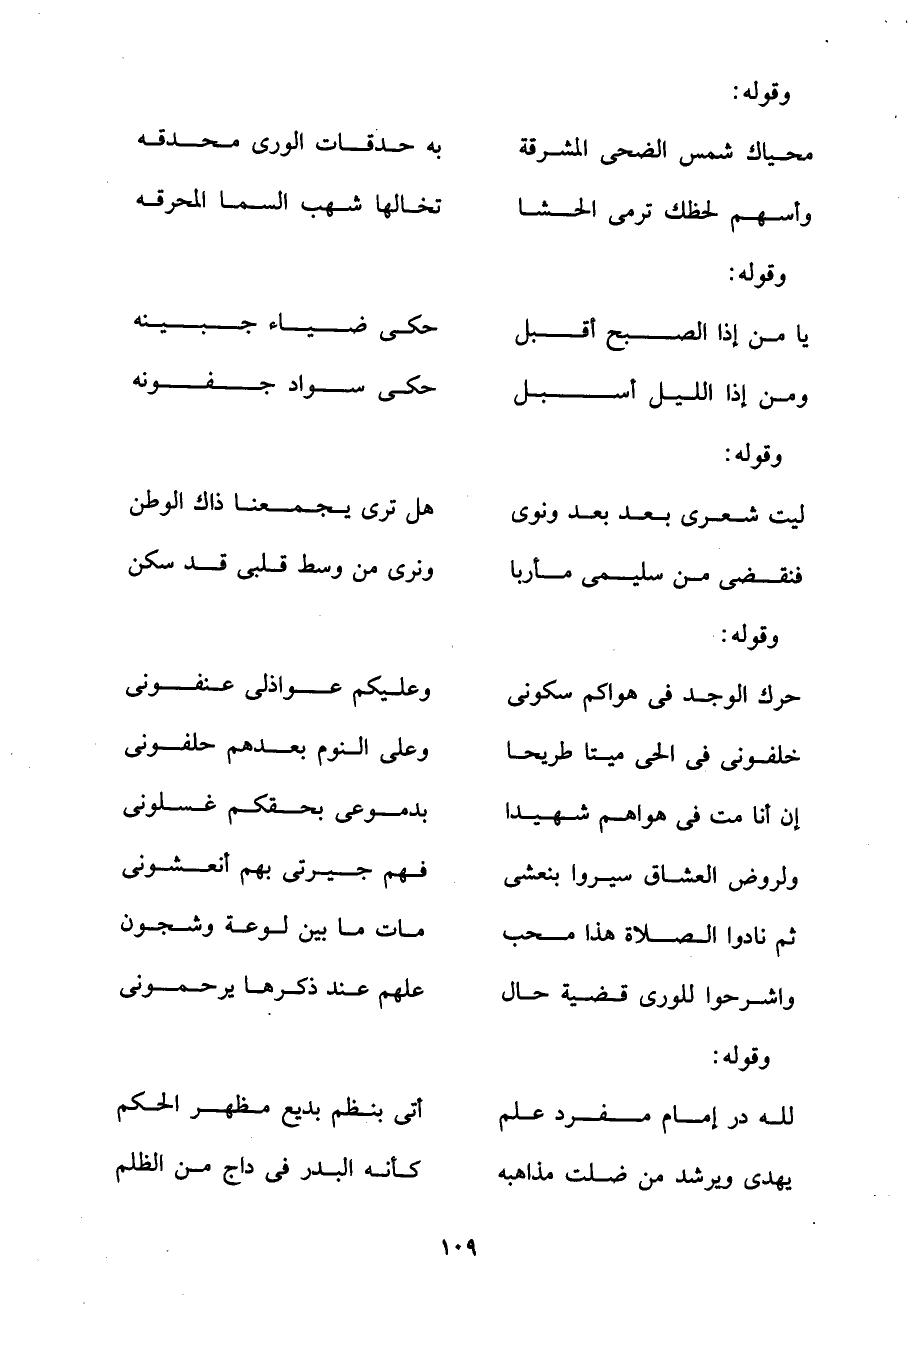 وقوله:
محياك شمس الضحى المشرقة به حدقات الورى محدقه
وأسهم لحظك ترمى الحشا تخالها شهب السما المحرقه
وقوله:
يا من إذا الصبح أقبل حكى ضياء جبينه
ومن إذا الليل أسبل حكى سواد جفونه
وقوله:
ليت شعرى بعد بعد ونوى هل ترى يجمعنا ذاك الوطن
فنقضى من سليمى مأربا ونرى من وسط قلبى قد سكن
وقوله:
حرك الوجد فى هواكم سكونى وعليكم عواذلى عنفونى
خلفونى فى الحى ميتا طريحا وعلى النوم بعدهم حلفونى
إن أنا مت فى هواهم شهيدا بدموعى بحقكم غسلونى
ولروض العشاق سيروا بنعشى فهم جيرتى بهم أنعشونى
ثم نادوا الصلاة هذا محب مات ما بين لوعة وشجون
واشرحوا للورى قضية حال علهم عند ذكرها يرحمونى
وقوله:
لله در إمام مفرد علم أتى بنظم بديع مظهر الحكم
يهدى ويرشد من ضلت مذاهبه كأنه البدر فى داج من الظلم
١٠٩